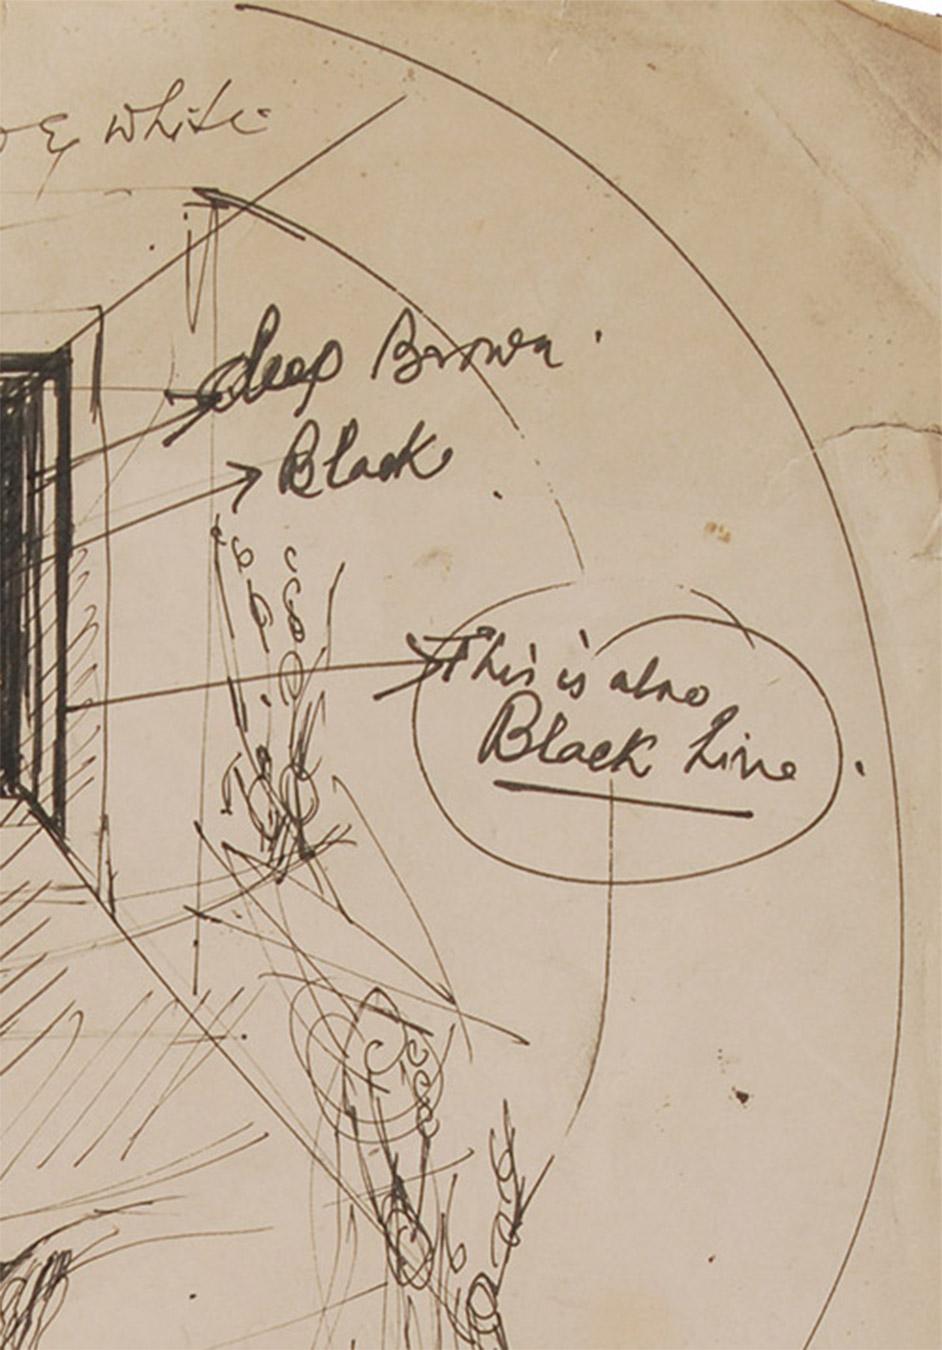 & white
deep Brown.
Black
This is also
Black Line.